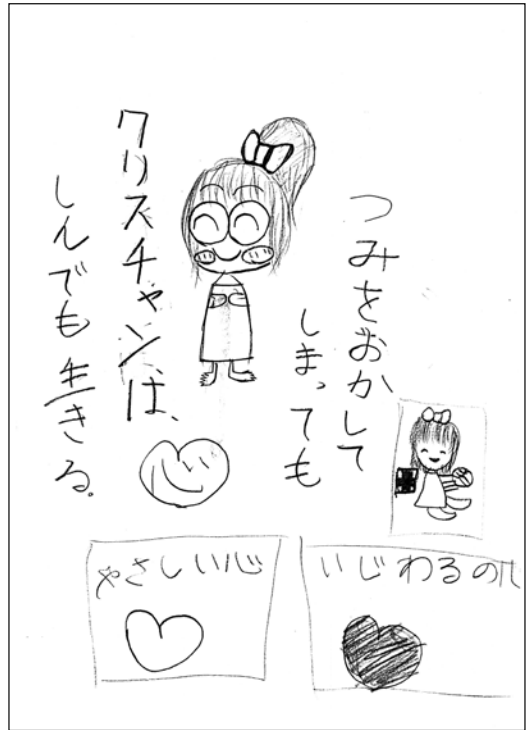 つみをおかして
しまっても
クリスチャンは、
しんでも生きる。
心
やさしい心
いじわるの心